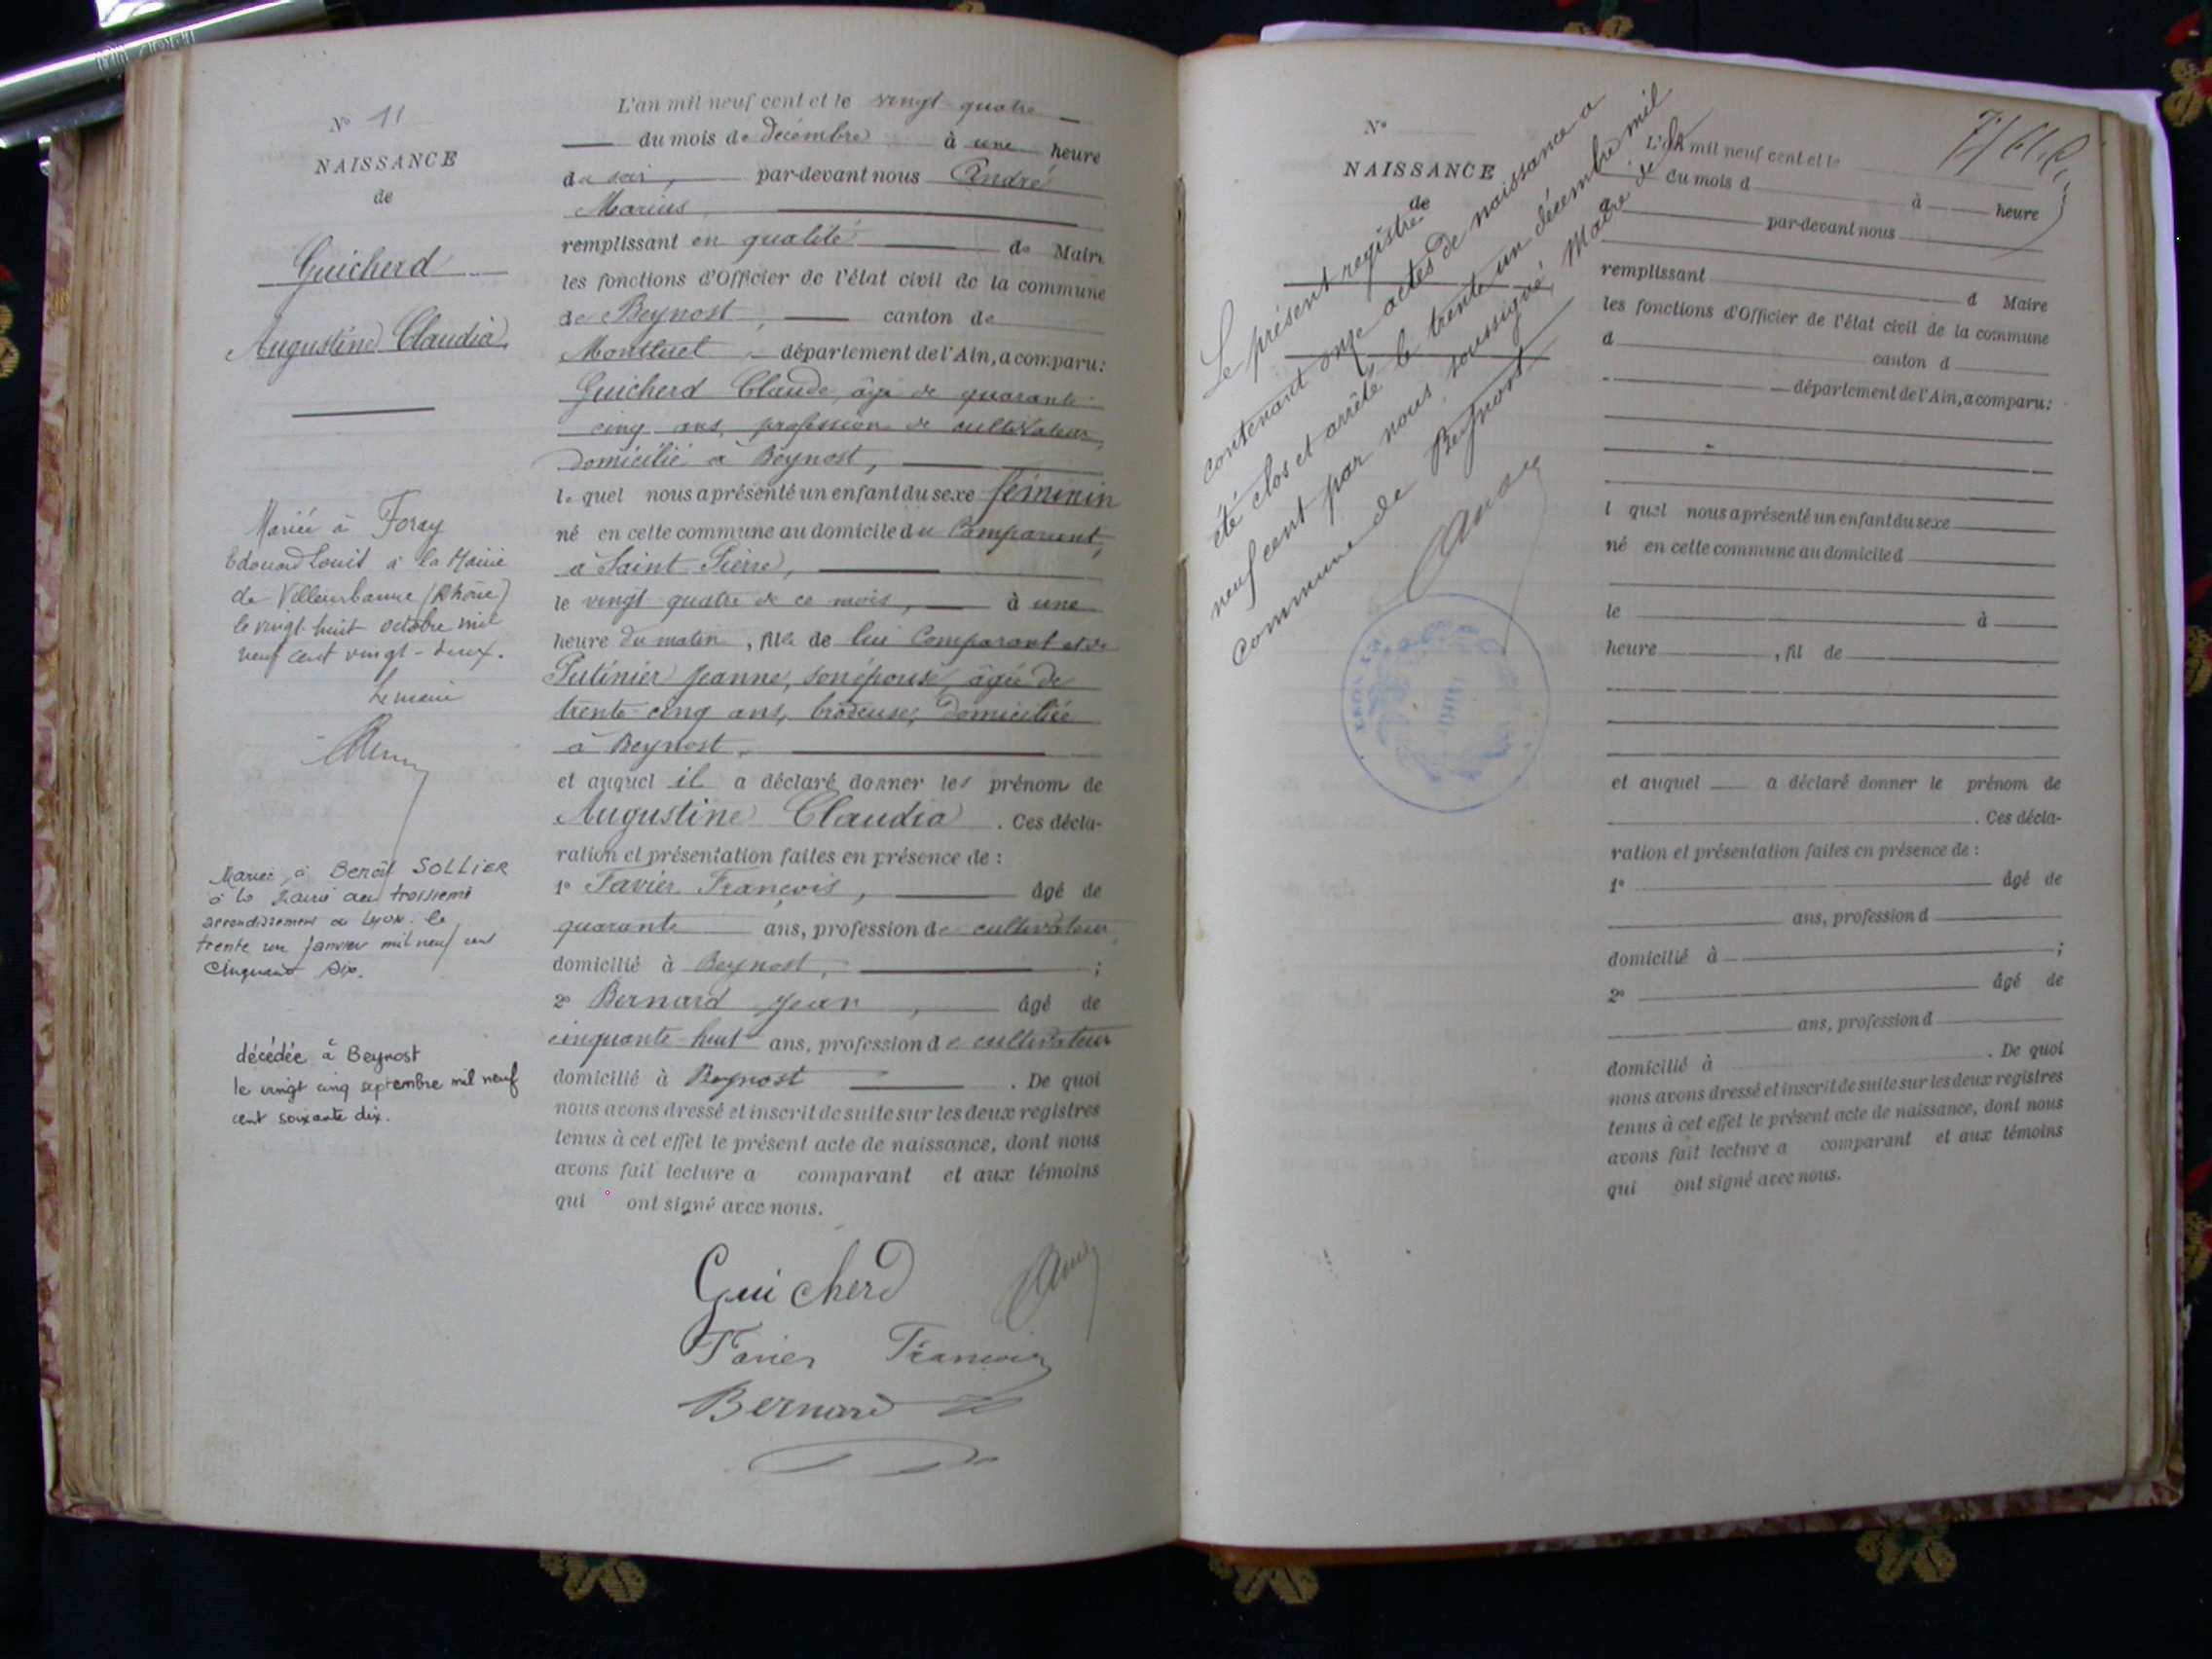 N° 11
NAISSANCE
de
Guicherd
Augustine Claudia
Mariée à Foray
Edouard Louis à la Mairie
de Villeurbanne (Rhône)
le vingt-huit octobre mil
neuf cent vingt-deux.
Le maire
Mariée à Benoît SOLLIER
à la Mairie du troisième
arrondissement de Lyon. le
trente un janvier mil neuf cent
cinquante six.
décédée à Beynost
le vingt cinq septembre mil neuf
cent soixante dix.
L'an mil neuf cent et le vingt-quatre
du mois de décembre à une heure
du soir, par-devant nous André
Marius,
remplissant en qualité de Maire
les fonctions d'Officier de l'état civil de la commune
de Beynost, canton de
Montluel, département de l'Ain, a comparu:
Guicherd Claude, âgé de quarante
cinq ans, profession de cultivateur,
domicilié à Beynost,
lequel nous a présenté un enfant du sexe féminin
né en cette commune au domicile du Comparant,
à Saint Pierre,
le vingt quatre de ce mois, à une
heure du matin, fille de lui Comparant et de
Putinier Jeanne, son épouse, âgée de
trente-cinq ans, brodeuse, domiciliée
à Beynost.
et auquel il a déclaré donner les prénoms de
Augustine Claudia. Ces décla-
ration et présentation faites en présence de :
1° Favier François, âgé de
quarante ans, profession de cultivateur,
domicilié à Beynost, ;
2° Bernard Jean, âgé de
cinquante-huit ans, profession de cultivateur
domicilié à Beynost. De quoi
nous avons dressé et inscrit de suite sur les deux registres
tenus à cet effet le présent acte de naissance, dont nous
avons fait lecture a comparant et aux témoins
qui ont signé avec nous.
Guicherd
Favier François
Bernard
N°
NAISSANCE
de
Le présent registre
contenant onze actes de naissance a
été clos et arrêté le trente un décembre mil
neuf cent par nous, soussigné, Maire de la
Commune de Beynost
L'an mil neuf cent et le
du mois d à heure
par-devant nous
remplissant d Maire
les fonctions d'Officier de l'état civil de la commune
d canton d
département de l'Ain, a comparu:
l quel nous a présenté un enfant du sexe
né en cette commune au domicile d
le à
heure, fil de
et auquel a déclaré donner le prénom de
. Ces décla-
ration et présentation faites en présence de :
1° âgé de
ans, profession d
domicilié à ;
2° âgé de
ans, profession d
domicilié à . De quoi
nous avons dressé et inscrit de suite sur les deux registres
tenus à cet effet le présent acte de naissance, dont nous
avons fait lecture a comparant et aux témoins
qui ont signé avec nous.